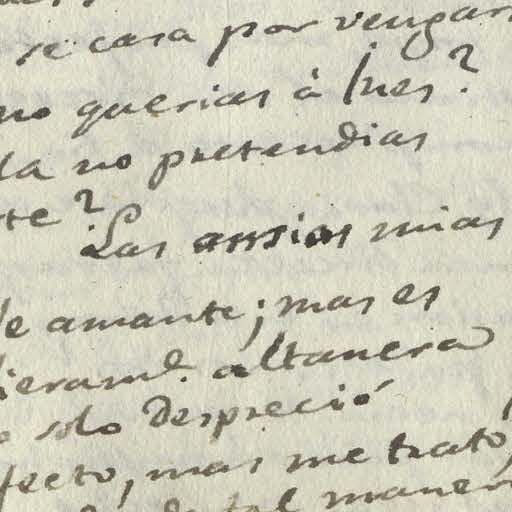 se casa por vengar
no querias à Ines?
la no pretendias
te?
Las ansias mias
de amante; mas es
ieram.e altanera
solo despreció
fecto, mas me trato,
de tal maner